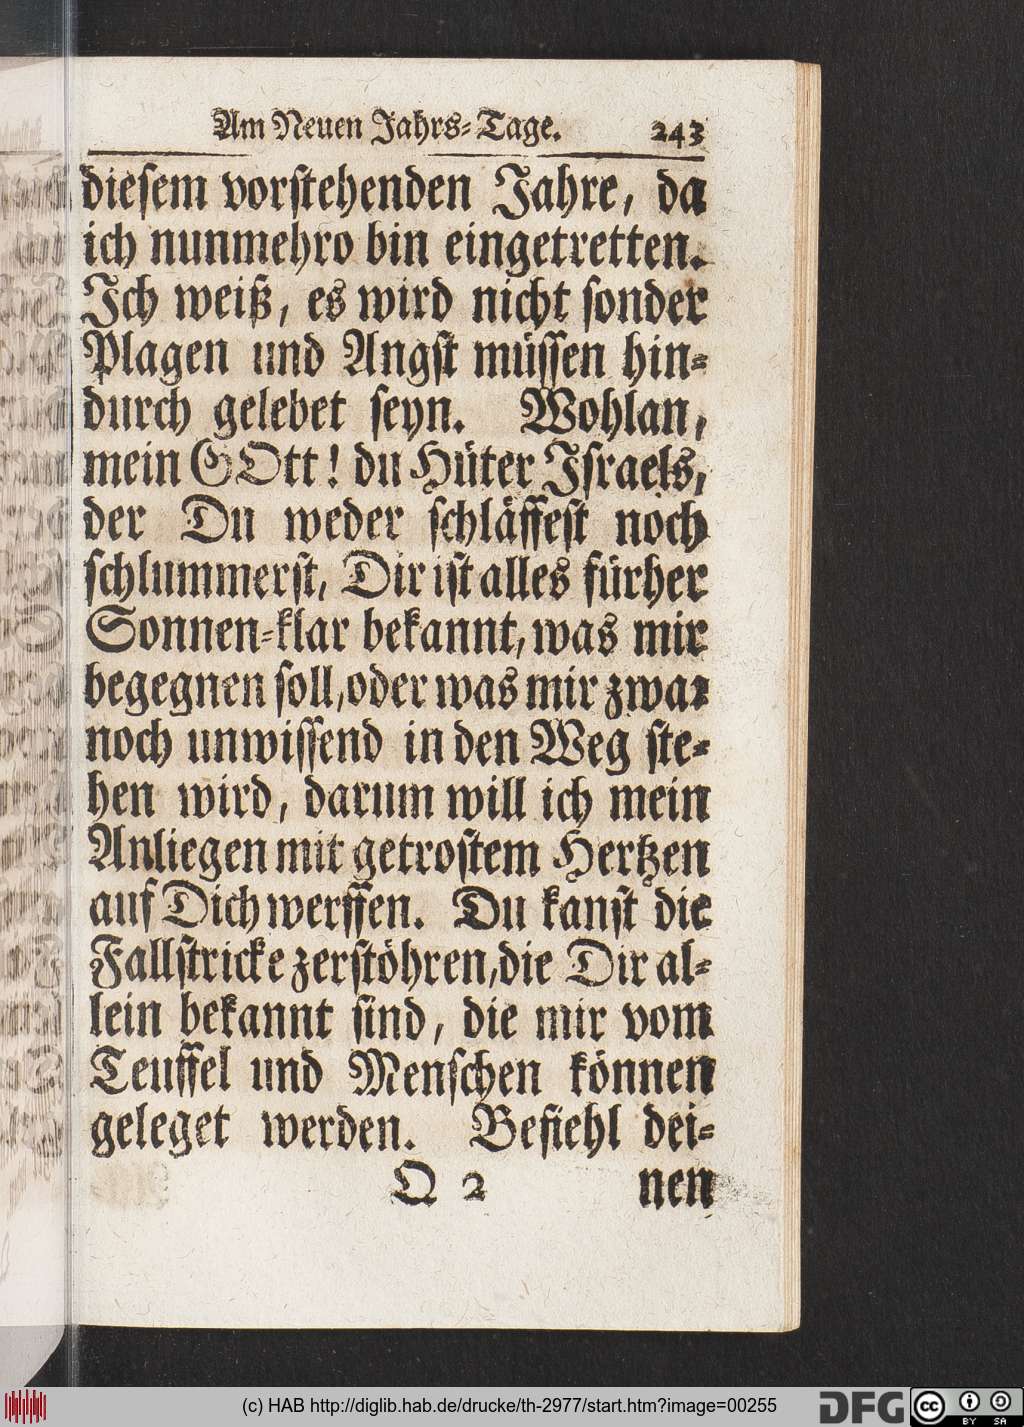 Am Neuen Jahrs-Tage. 243
diesem vorstehenden Jahre, da
ich nunmehro bin eingetretten.
Ich weiß, es wird nicht sonder
Plagen und Angst müssen hin-
durch gelebet seyn. Wohlan,
mein GOtt! du Hüter Israels,
der Du weder schläffest noch
schlummerst, Dir ist alles fürher
Sonnen-klar bekannt, was mir
begegnen soll, oder was mir zwar
noch unwissend in den Weg ste-
hen wird, darum will ich mein
Anliegen mit getrostem Hertzen
auf Dich werffen. Du kanst die
Fallstricke zerstöhren, die Dir al-
lein bekannt sind, die mir vom
Teuffel und Menschen können
geleget werden. Befiehl dei-
Q 2 nen
(c) HAB http://diglib.hab.de/drucke/th-2977/start.htm?image=00255
DFG
cc BY SA